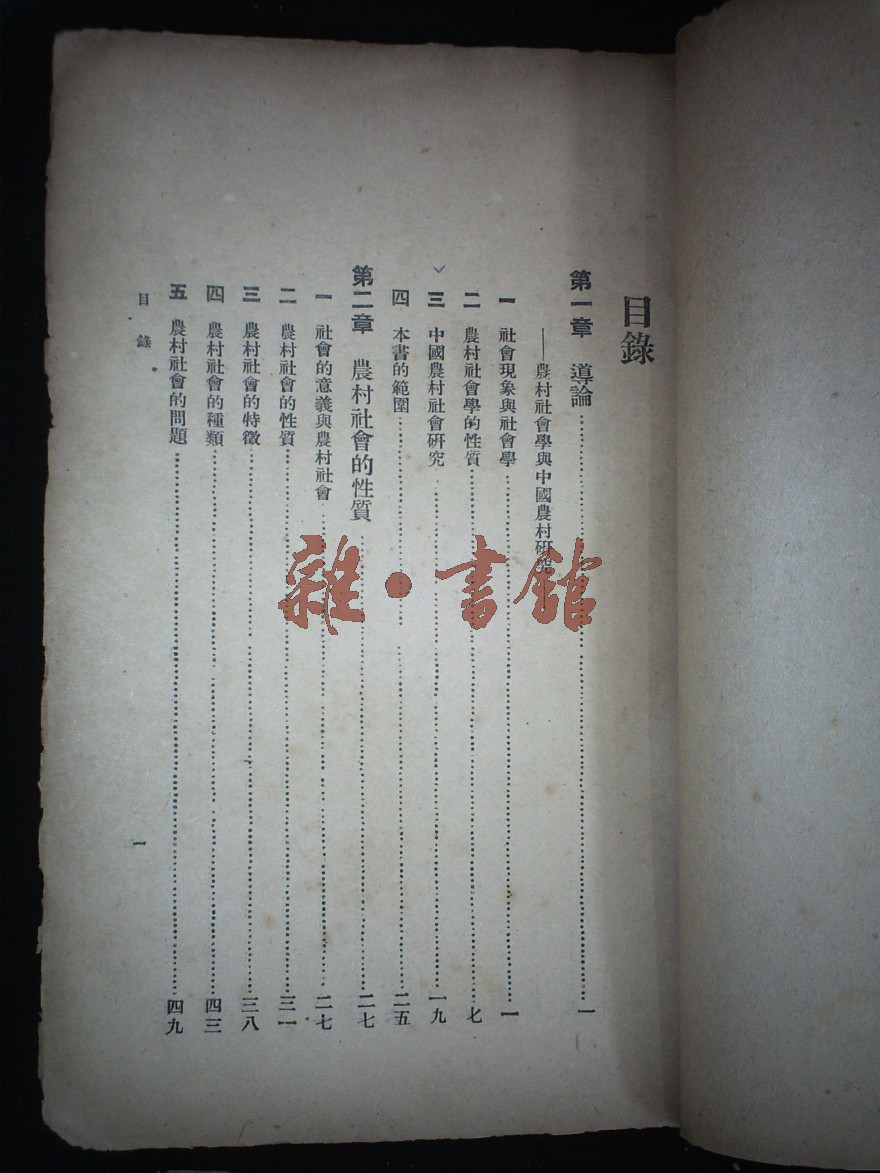 目錄
第一章 導論……一
——農村社會學與中國農村研究
一 社會現象與社會學……一
二 農村社會學的性質……七
三 中國農村社會研究……一九
四 本書的範圍……二五
第二章 農村社會的性質……二七
一 社會的意義與農村社會……二七
二 農村社會的性質……三一
三 農村社會的特徵……三八
四 農村社會的種類……四三
五 農村社會的問題……四九
目錄
一
雜·書館